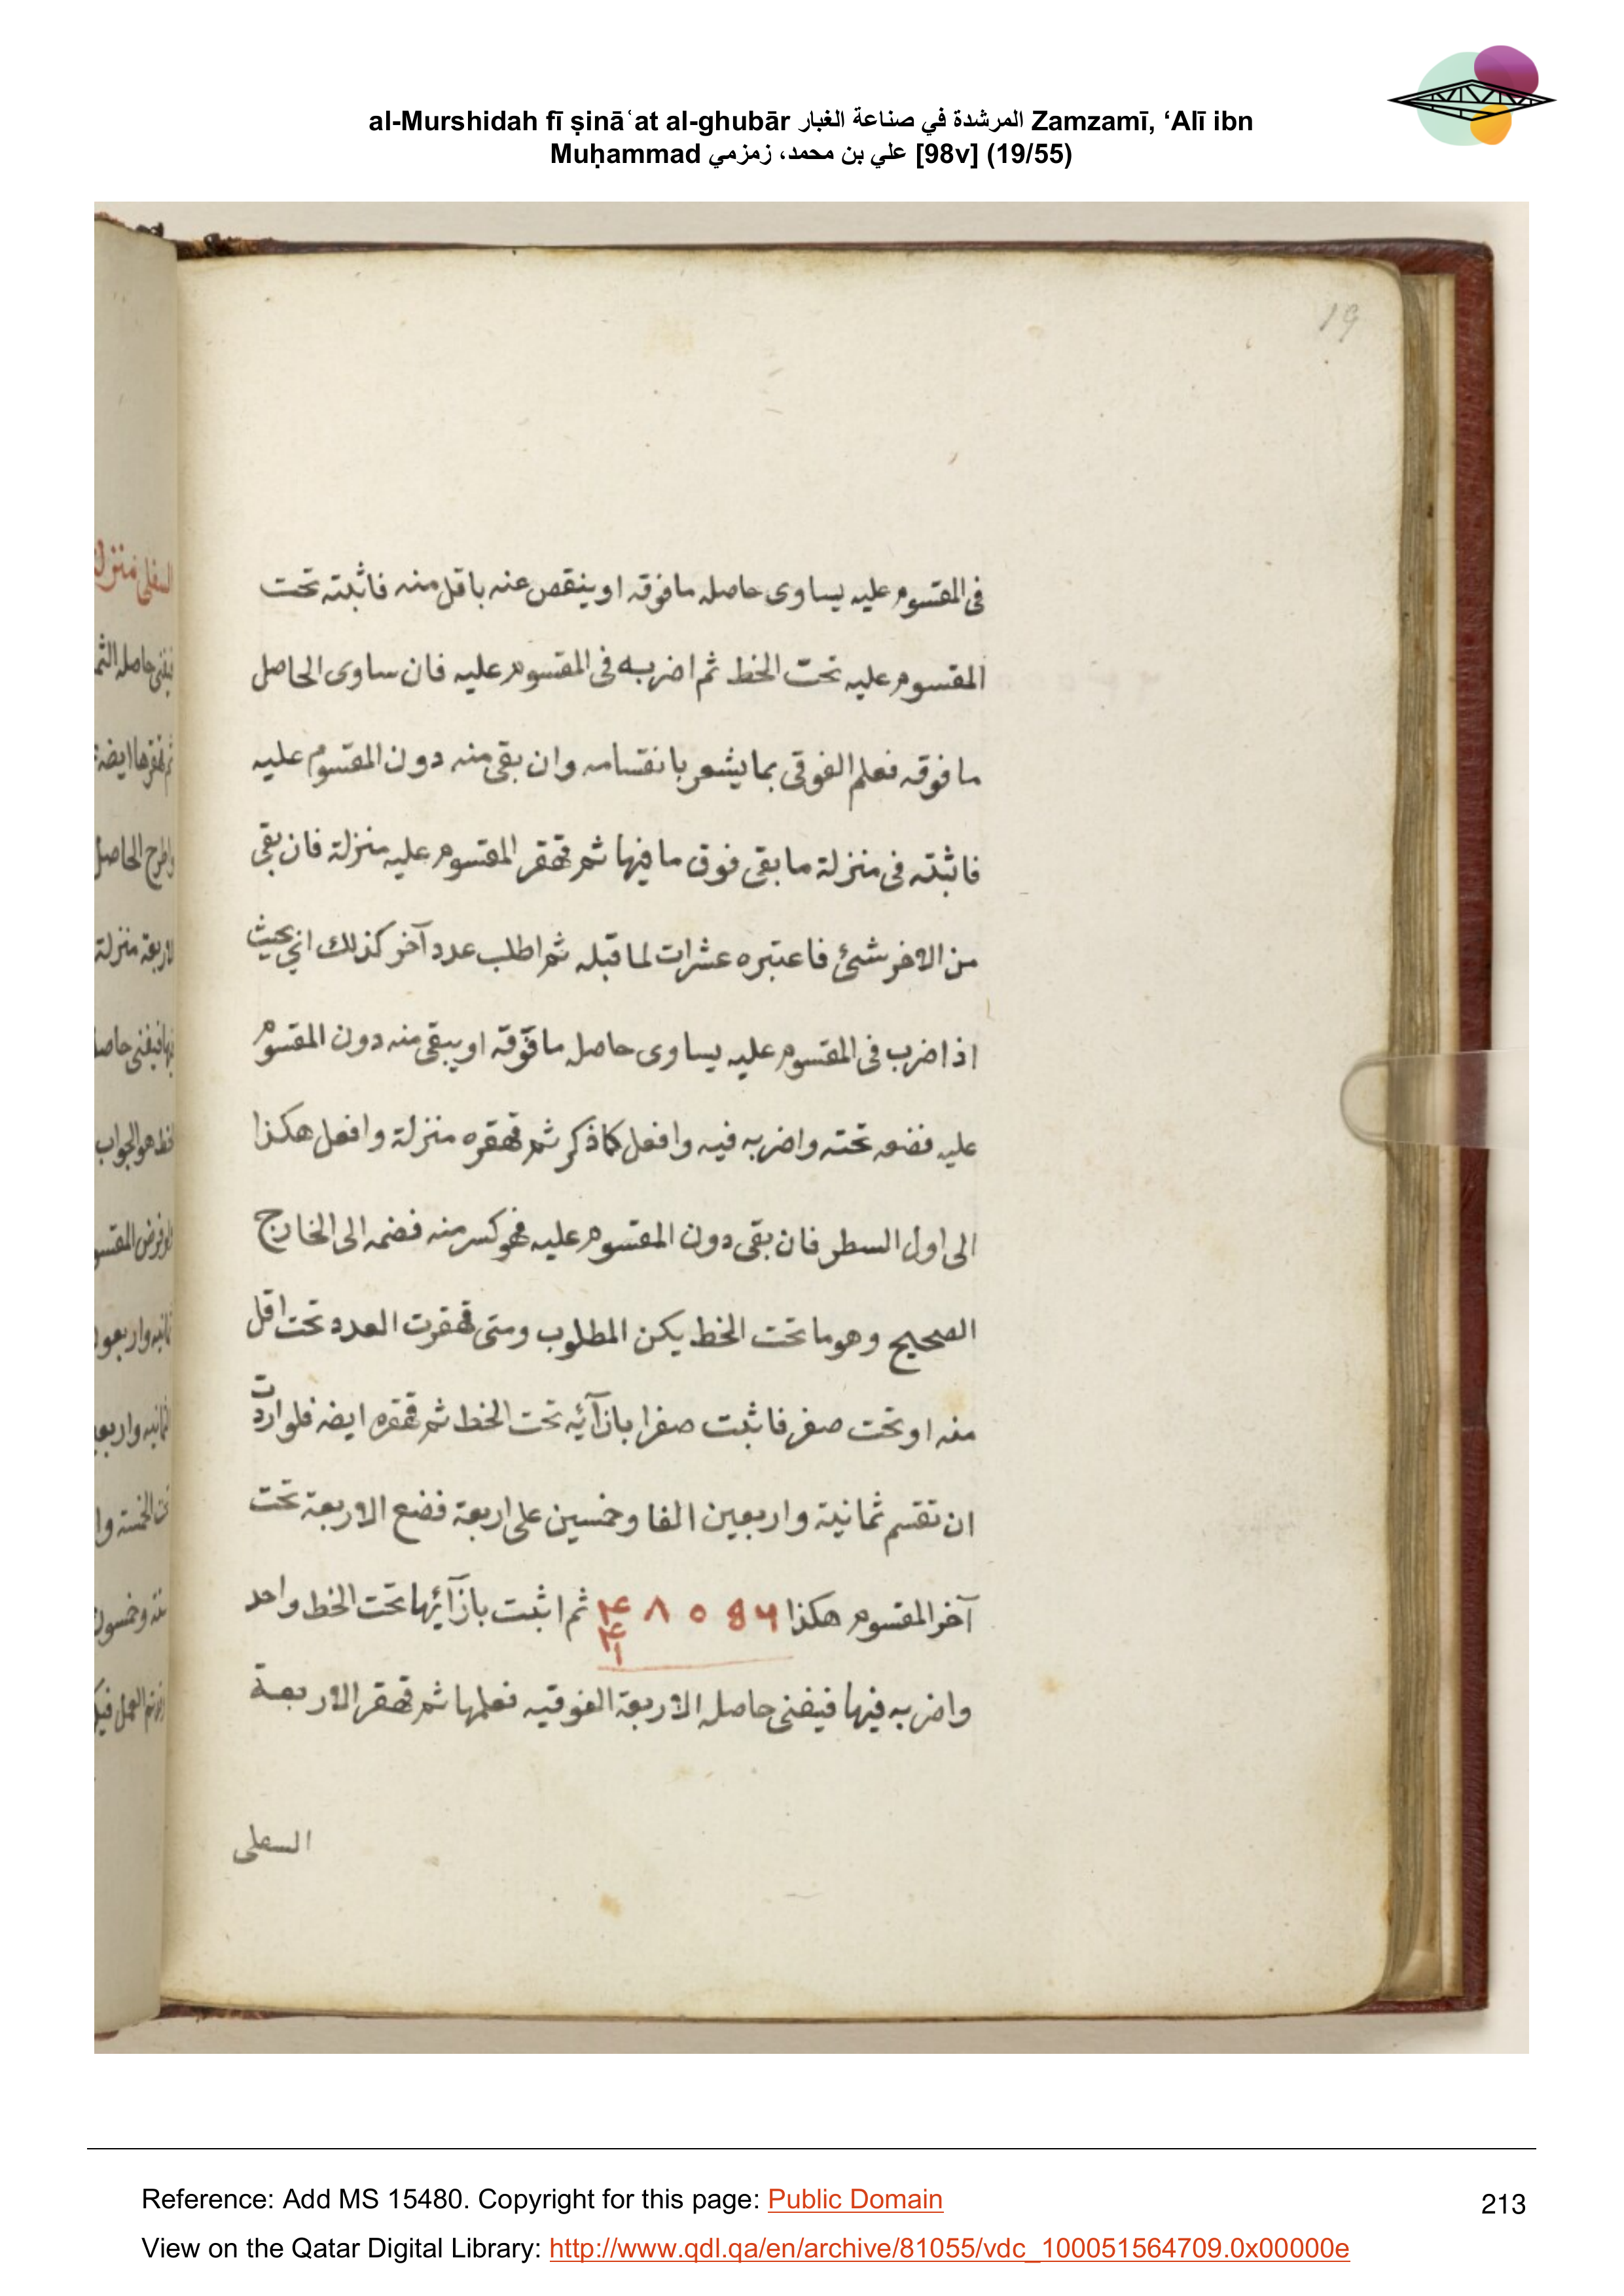 al-Murshidah fī ṣināʿat al-ghubār المرشدة في صناعة الغبار Zamzamī, ‘Alī ibn
Muḥammad علي بن محمد، زمزمي [98v] (19/55)
19
فى المقسوم عليه يساوى حاصله مافوقه او ينقص عنه باقل منه فاثبته تحت
المقسوم عليه تحت الخط ثم اضربه فى المقسوم عليه فان ساوى الحاصل
ما فوقه فعلم الفوقى بما يشعر بانقسامه وان بقى منه دون المقسوم عليه
فاثبته فى منزلة ما بقى فوق ما فيها ثم قهقر المقسوم عليه منزلة فان بقى
من الاخر شئ فاعتبره عشرات لما قبله ثم اطلب عدد آخر كذلك اى بحيث
اذا ضرب فى المقسوم عليه يساوى حاصل ما فوقه او يبقى منه دون المقسوم
عليه فضعه تحته واضربه فيه وافعل كما ذكر ثم قهقره منزلة وافعل هكذا
الى اول السطر فان بقى دون المقسوم عليه فهو كسر منه فضمه الى الخارج
الصحيح وهو ما تحت الخط يكن المطلوب ومتى قهقرت العدد تحت اقل
منه او تحت صفر فاثبت صفرا بازآئه تحت الخط ثم قهقره ايضه فلو اردت
ان تقسم ثمانية واربعين الفا وخمسين على اربعة فضع الاربعة تحت
آخر المقسوم هكذا ۴ ۸ ٥ ثم اثبت بازآئها تحت الخط واحد
۴
۱
واضربه فيها فيفنى حاصله الاربعة الفوقيه فعلمها ثم قهقر الاربعة
السفلى
Reference: Add MS 15480. Copyright for this page: Public Domain
213
View on the Qatar Digital Library: http://www.qdl.qa/en/archive/81055/vdc_100051564709.0x00000e